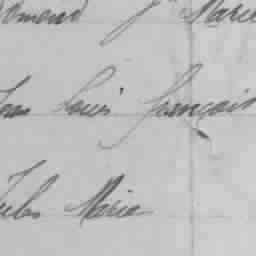 Edmond Jh Marie
Jean Louis françois
Jules Marie